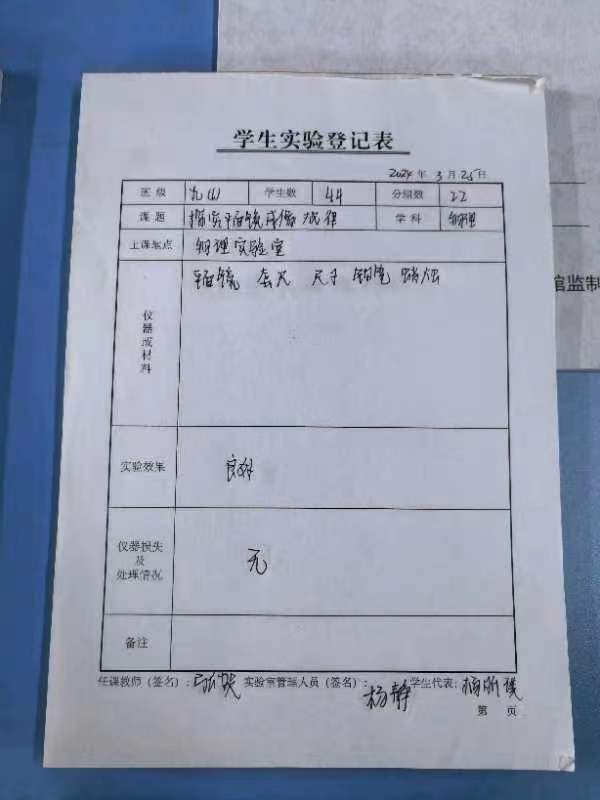 学生实验登记表
2024年3月25日
班级 九(6) 学生数 44 分组数 22
课题 探究平面镜成像规律 学科 物理
上课地点 物理实验室
仪器或材料 平面镜 尺子 蜡烛
实验效果 良好
仪器损失及处理情况 无
备注
任课教师（签名）: 实验室管理人员（签名）: 杨静 学生代表: 杨
第 页
馆监制